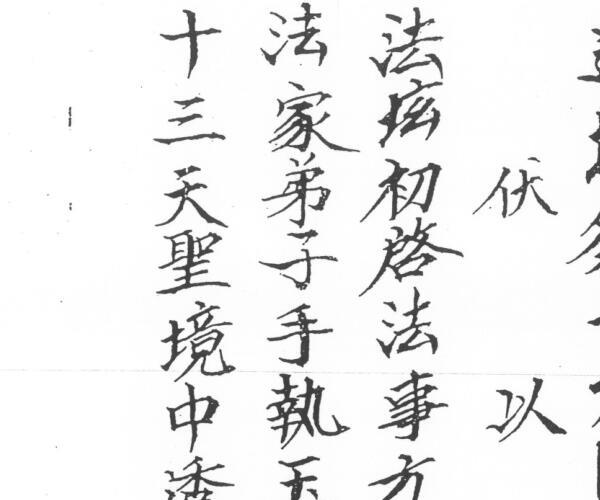 伏以
法坛初啓法事方
法家弟子手執
十三天聖境中透